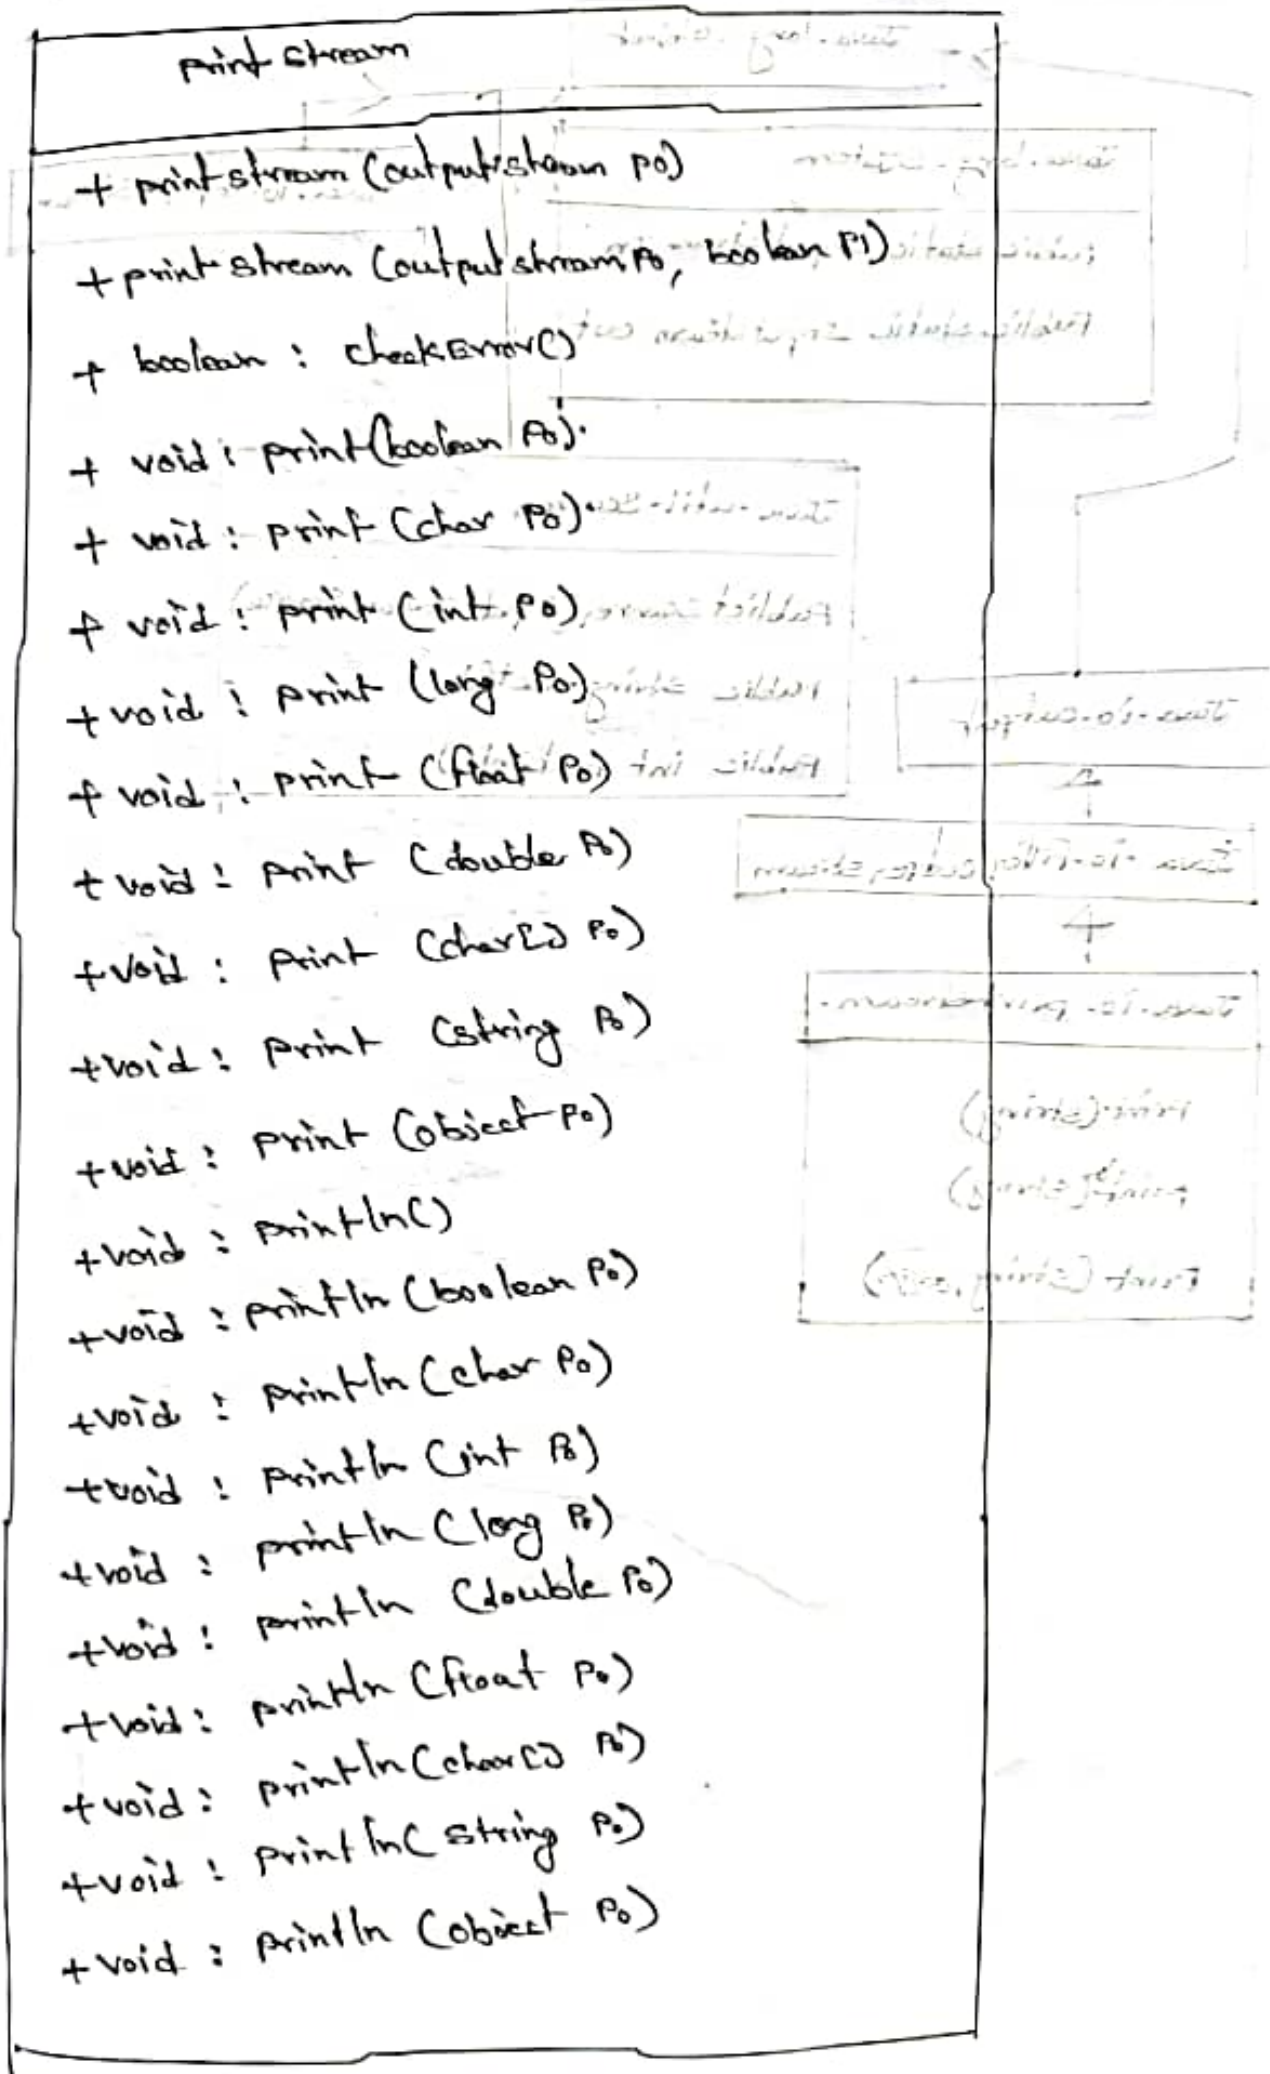 print stream
+ print stream (output stream p0)
+ print stream (output stream p0, boolean p1)
+ boolean : checkError()
+ void : print (boolean p0).
+ void : print (char p0).
+ void : print (int p0)
+ void : print (long p0)
+ void : print (float p0)
+ void : print (double p0)
+ void : print (char[] p0)
+ void : print (string p0)
+ void : print (object p0)
+ void : println()
+ void : println (boolean p0)
+ void : println (char p0)
+ void : println (int p0)
+ void : println (long p0)
+ void : println (double p0)
+ void : println (float p0)
+ void : println (char[] p0)
+ void : println( string p0)
+ void : println (object p0)